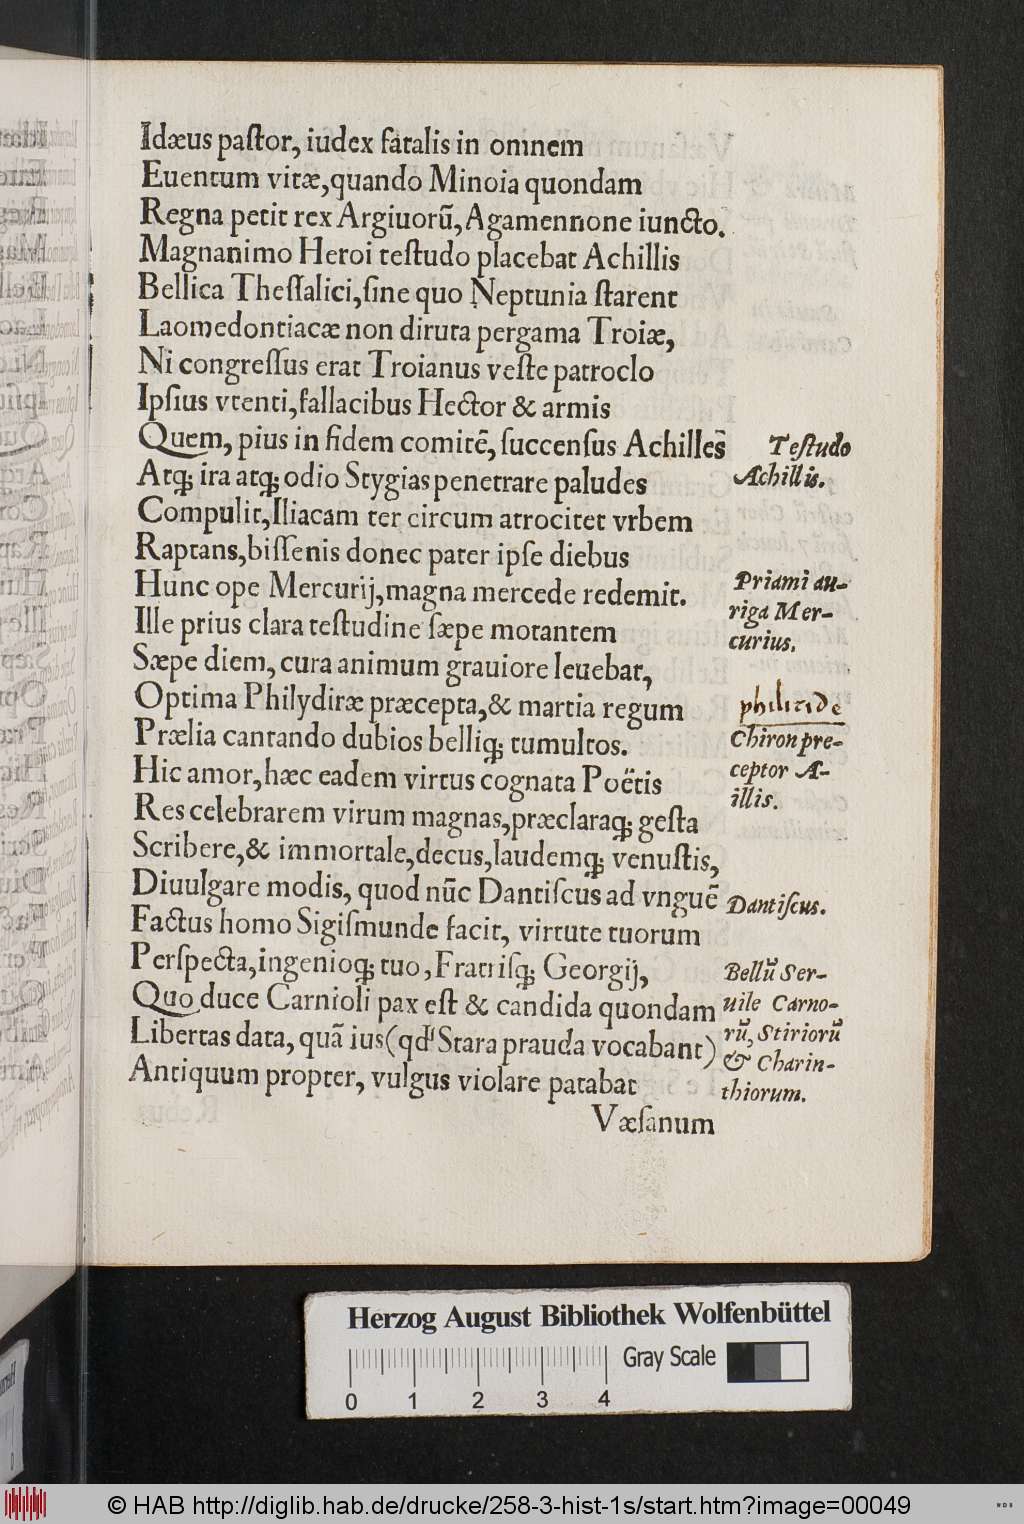 Idæus paſtor, iudex fatalis in omnem
Euentum vitæ, quando Minoia quondam
Regna petit rex Argiuorũ, Agamennone iuncto.
Magnanimo Heroi teſtudo placebat Achillis
Bellica Theſſalici, ſine quo Neptunia ſtarent
Laomedontiacæ non diruta pergama Troiæ,
Ni congreſſus erat Troianus veſte patroclo
Ipſius vtenti, fallacibus Hector & armis
Quem, pius in fidem comitẽ, ſuccenſus Achilles̃
Teſtudo
Achillis.
Atq; ira atq; odio Stygias penetrare paludes
Compulit, Iliacam ter circum atrocitet vrbem
Raptans, biſſenis donec pater ipſe diebus
Hunc ope Mercurij, magna mercede redemit.
Priami au-
riga Mer-
curius.
Ille prius clara teſtudine ſæpe morantem
Sæpe diem, cura animum grauiore leuebat,
Optima Philydiræ præcepta, & martia regum
philiride
Prælia cantando dubios belliq; tumultos.
Chiron pre-
ceptor A-
illis.
Hic amor, hæc eadem virtus cognata Poëtis
Res celebrarem virum magnas, præclaraq; geſta
Scribere, & immortale, decus, laudemq; venuſtis,
Diuulgare modis, quod nũc Dantiſcus ad vnguẽ
Dantiſcus.
Factus homo Sigiſmunde facit, virtute tuorum
Perſpecta, ingenioq; tuo, Fratriſq; Georgij,
Bellũ Ser-
uile Carno-
rũ, Stiriorũ
& Charin-
thiorum.
Quo duce Carnioli pax eſt & candida quondam
Libertas data, quã ius (qđ Stara prauda vocabant)
Antiquum propter, vulgus violare patabat
Væſanum
Herzog August Bibliothek Wolfenbüttel
Gray Scale
0 1 2 3 4
© HAB http://diglib.hab.de/drucke/258-3-hist-1s/start.htm?image=00049